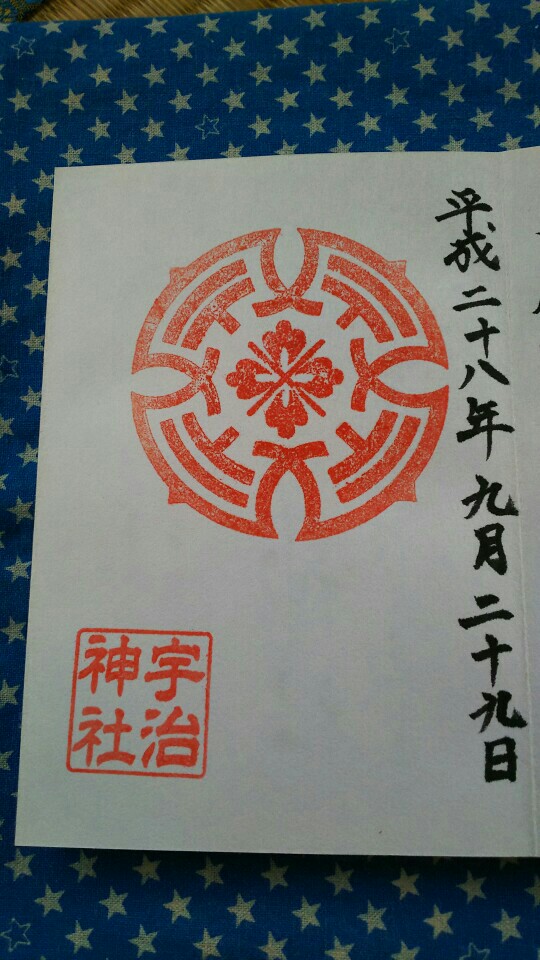 平成二十八年九月二十九日
宇治
神社